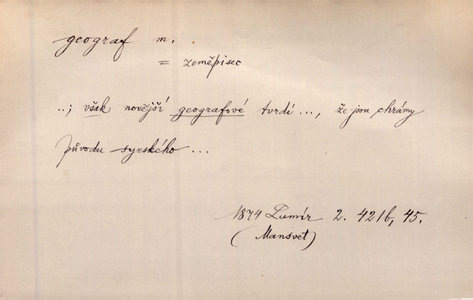 geograf m.
= zeměpisec
..; však novější geografové tvrdí ..., že jsou chrámy
původu syrského ...
1874 Lumír 2. 421b, 45.
(Mansvet)